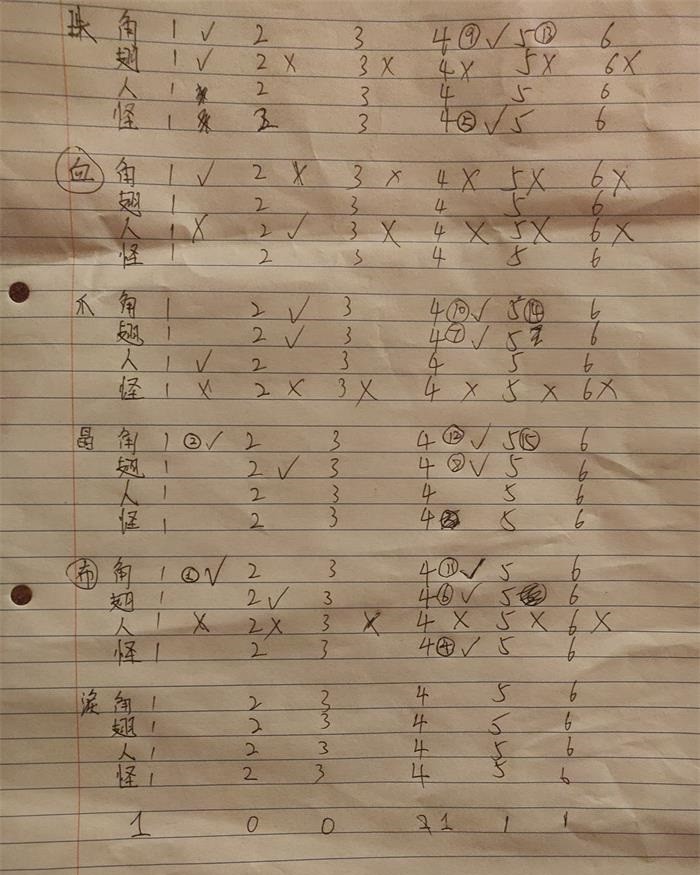 珠 角 1 ✓ 2 3 4 ⑨ ✓ 5 ⑬ 6
翅 1 ✓ 2 × 3 × 4 × 5 × 6 ×
人 1 2 3 4 5 6
怪 1 2 3 4 ⑤ ✓ 5 6
向 角 1 ✓ 2 × 3 × 4 × 5 × 6 ×
翅 1 2 3 4 5 6
人 1 × 2 ✓ 3 × 4 × 5 × 6 ×
怪 1 2 3 4 5 6
爪 角 1 2 ✓ 3 4 ⑩ ✓ 5 ⑭ 6
翅 1 2 ✓ 3 4 ⑦ ✓ 5 6
人 1 ✓ 2 3 4 5 6
怪 1 × 2 × 3 × 4 × 5 × 6 ×
晶 角 1 ② ✓ 2 3 4 ⑫ ✓ 5 ⑮ 6
翅 1 2 ✓ 3 4 ⑧ ✓ 5 6
人 1 2 3 4 5 6
怪 1 2 3 4 5 6
布 角 1 ✓ 2 3 4 ⑪ ✓ 5 6
翅 1 2 ✓ 3 4 ⑥ ✓ 5 6
人 1 × 2 × 3 × 4 × 5 × 6 ×
怪 1 2 3 4 ④ ✓ 5 6
涙 角 1 2 3 4 5 6
翅 1 2 3 4 5 6
人 1 2 3 4 5 6
怪 1 2 3 4 5 6
1 0 0 1 1 1